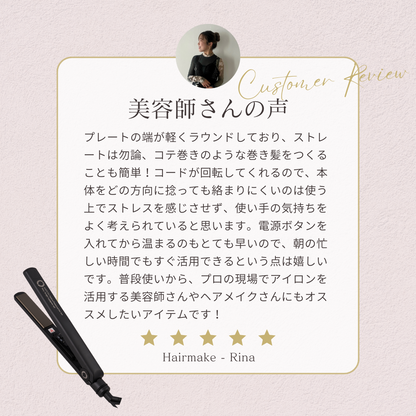 Customer Review
美容師さんの声
プレートの端が軽くラウンドしており、ストレ
ートは勿論、コテ巻きのような巻き髪をつくる
ことも簡単！コードが回転してくれるので、本
体をどの方向に捻っても絡まりにくいのは使う
上でストレスを感じさせず、使い手の気持ちを
よく考えられていると思います。電源ボタンを
入れてから温まるのもとても早いので、朝の忙
しい時間でもすぐ活用できるという点は嬉しい
です。普段使いから、プロの現場でアイロンを
活用する美容師さんやヘアメイクさんにもオス
スメしたいアイテムです！
Hairmake - Rina